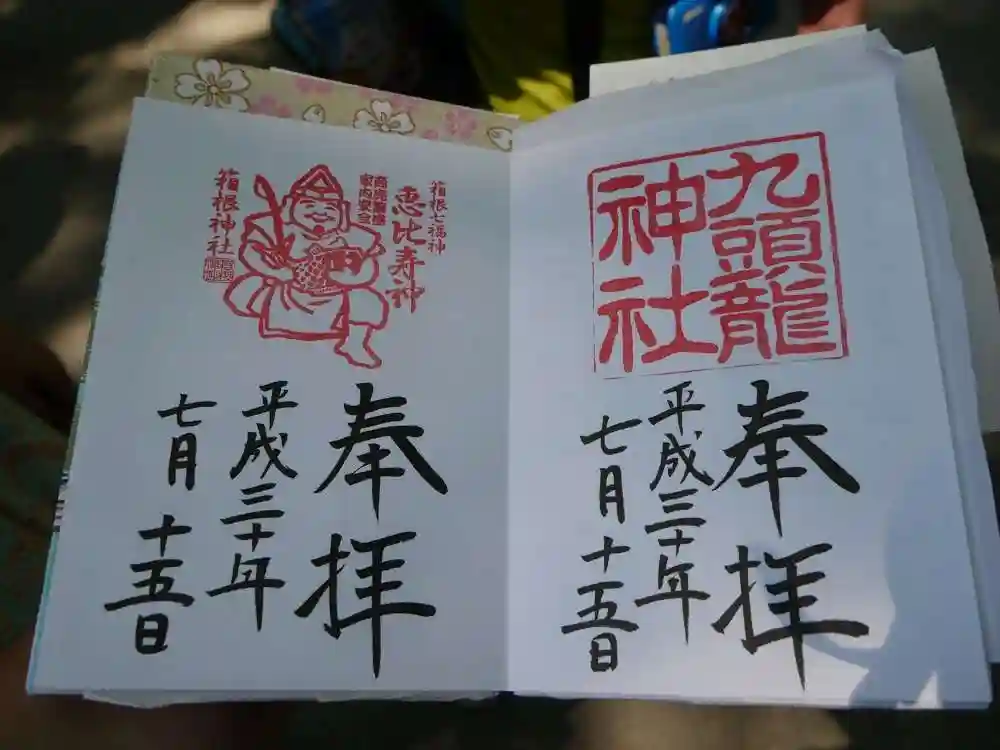 九頭龍
神社
奉拝
平成三十年
七月十五日
箱根七福神
恵比寿神
商売繁盛
家内安全
箱根神社
奉拝
平成三十年
七月十五日